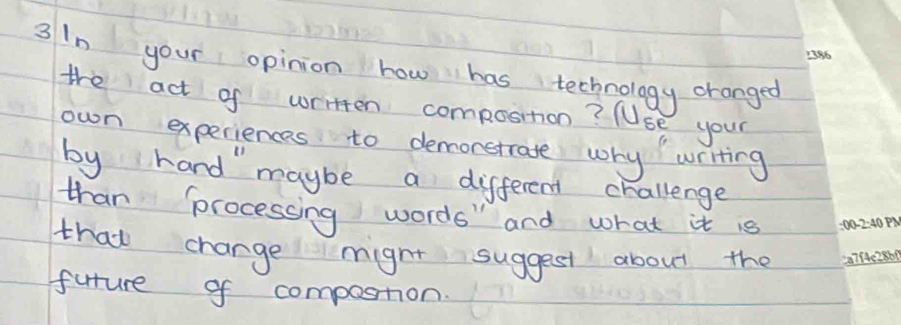 3 In your opinion how has technology changed
the act of written composition? (Use your
own experiences to demonstrate why "writing
by hand" maybe a different challenge
than "processing words" and what it is
that change might suggest about the
future of composition.
2386
:00-2:40 PM